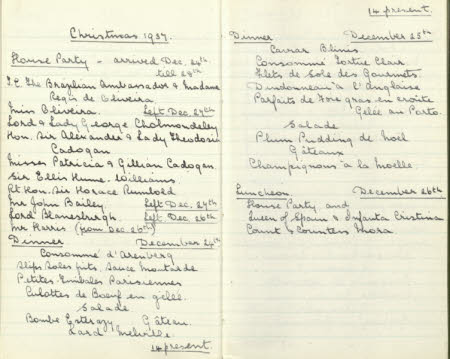 Christmas 1937.
House Party - arrived Dec. 24th
till 28th
T.E. The Brazilian Ambassador & Madame
Regis de Oliveira.
Miss Oliveira. Left Dec. 27th
Lord & Lady George Cholmondeley
Hon. Sir Alexander & Lady Theodosia
Cadogan
Misses Patricia & Gillian Cadogan.
Sir Ellis Hume. Williams
Rt Hon. Sir Horace Rumbold
Mr John Bailey Left Dec. 27th
Lord Blanesburgh. Left Dec. 26th
Mr Harris (from Dec. 26th)
Dinner December 24th
Consommé d'Arenberg
Slips Soles frits, Sauce Moutarde
Petites Timbales Parisiennes
Culottes de Boeuf en gelée.
Salade
Bombe Esterazy Gâteau.
Lard Melville
14 present.
14 present.
Dinner December 25th
Caviar Blinis
Consommé Tortue Clair
Filets de Sole des Gourmets.
Dindonneau à l'Anglaise
Parfaits de Foie gras en croûte
Gelée au Porto.
Salade
Plum Pudding de Noel
Gâteaux
Champignons à la Moelle.
Luncheon. December 26th
House Party and
Queen of Spain & Infanta Cristina
Count & Countess Mora.